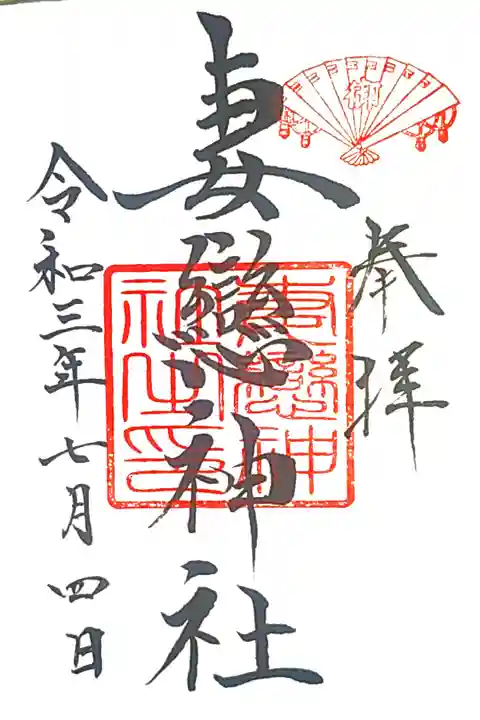 御
奉拝
妻戀神社
妻戀神社之印
令和三年七月四日